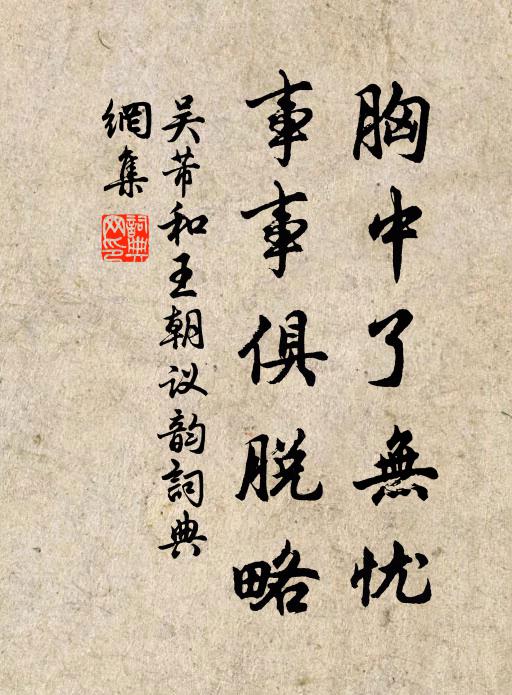 胸中了無忧
事事俱脱略
吴芾和王朝议韵詞典
網集
詞典网印